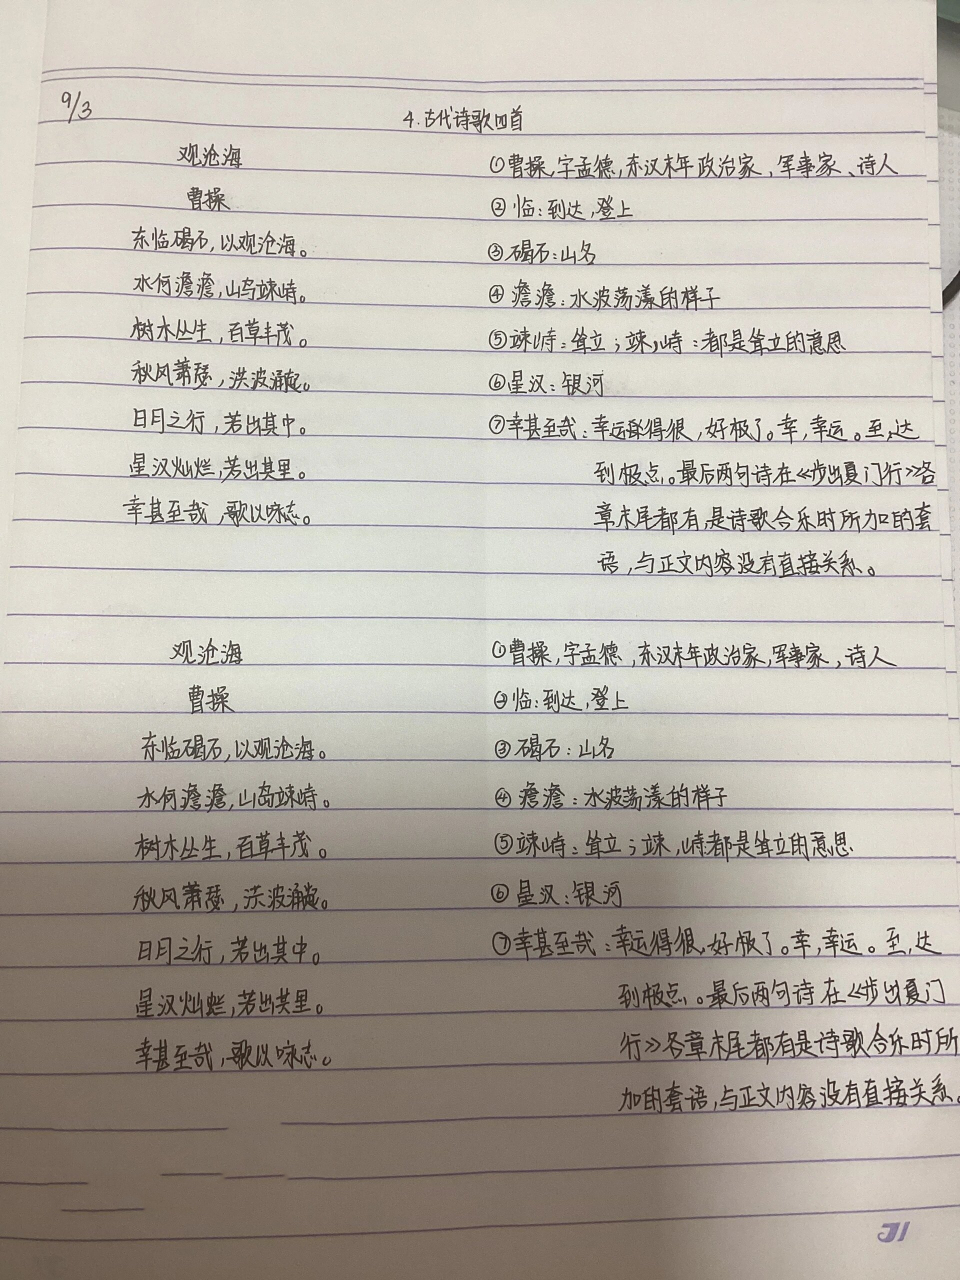 9/3
4.古代诗歌四首
观沧海
曹操
东临碣石,以观沧海。
水何澹澹,山岛竦峙。
树木丛生,百草丰茂。
秋风萧瑟,洪波涌起。
日月之行,若出其中。
星汉灿烂,若出其里。
幸甚至哉,歌以咏志。
①曹操,字孟德,东汉末年政治家、军事家、诗人
②临:到达,登上
③碣石:山名
④澹澹:水波荡漾的样子
⑤竦峙:耸立;竦,峙:都是耸立的意思
⑥星汉:银河
⑦幸甚至哉:幸运得很,好极了。幸,幸运。至,达
到极点。最后两句诗在《步出夏门行》各
章末尾都有,是诗歌合乐时所加的套
语,与正文内容没有直接关系。
观沧海
曹操
东临碣石,以观沧海。
水何澹澹,山岛竦峙。
树木丛生,百草丰茂。
秋风萧瑟,洪波涌起。
日月之行,若出其中。
星汉灿烂,若出其里。
幸甚至哉,歌以咏志。
①曹操,字孟德,东汉末年政治家,军事家,诗人
②临:到达,登上
③碣石:山名
④澹澹:水波荡漾的样子
⑤竦峙:耸立;竦,峙都是耸立的意思
⑥星汉:银河
⑦幸甚至哉:幸运得很,好极了。幸,幸运。至,达
到极点。最后两句诗在《步出夏门
行》各章末尾都有是诗歌合乐时所
加的套语,与正文内容没有直接关系。